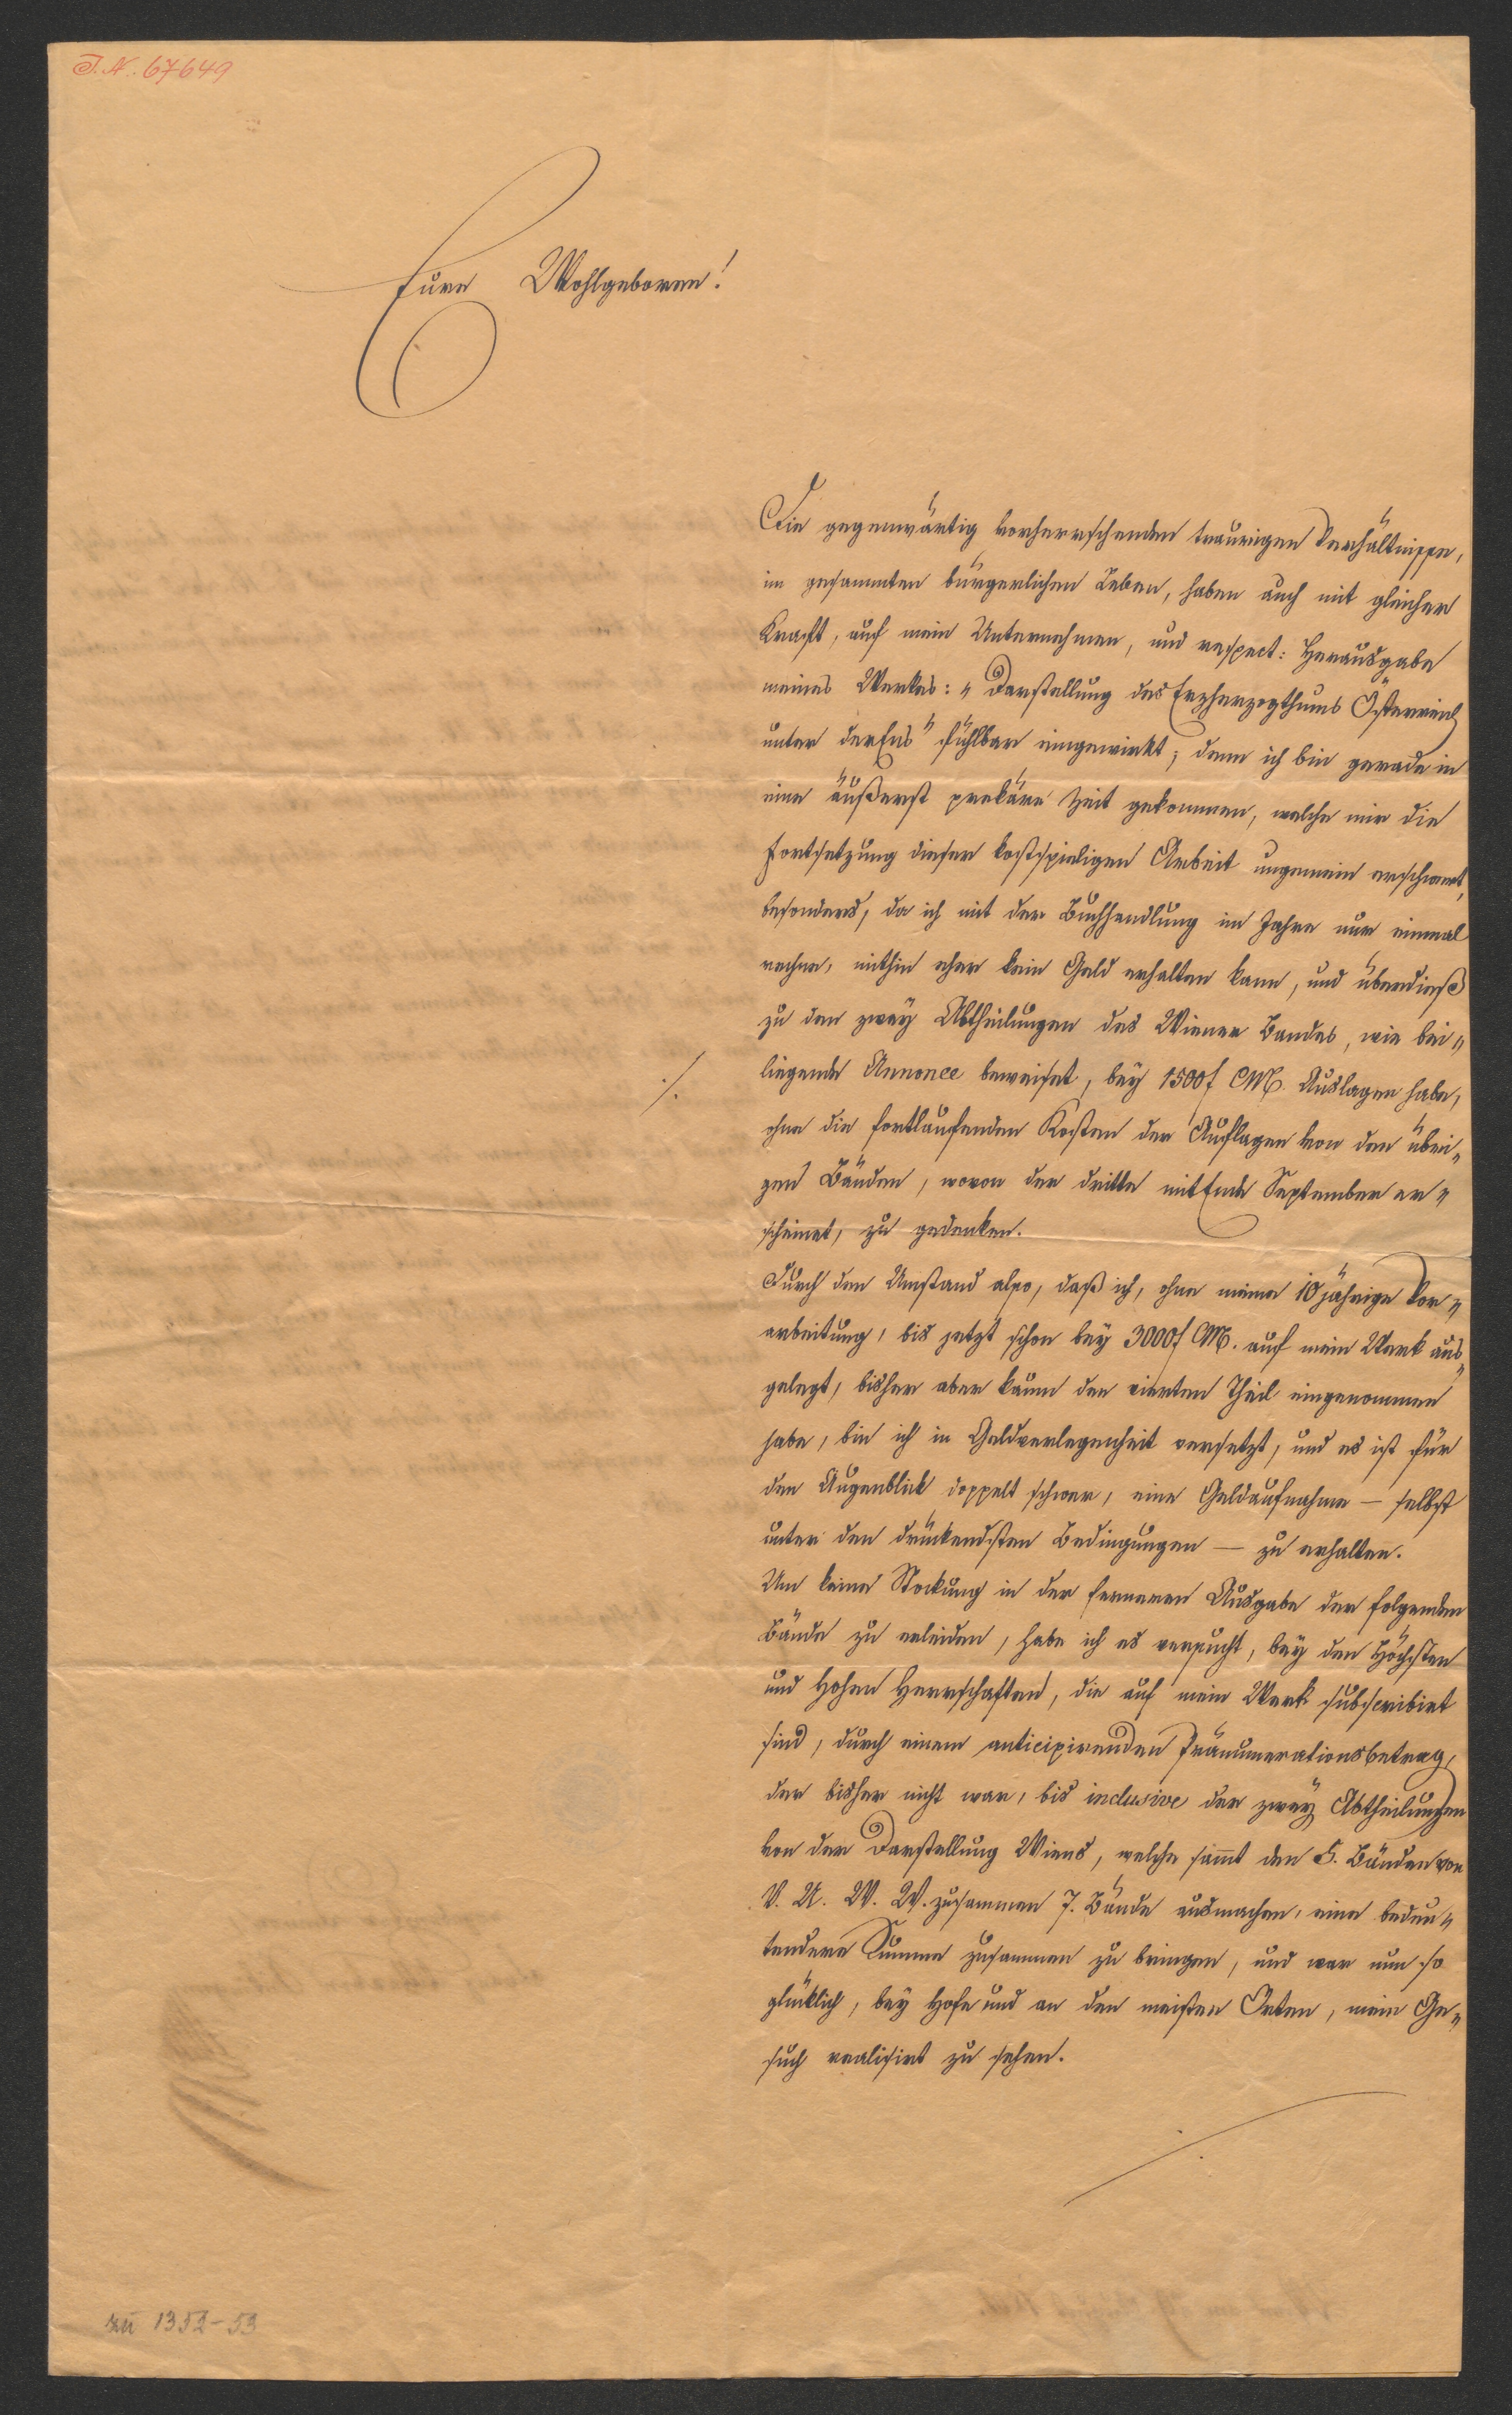 I. N. 67649
Eure Wohlgeboren!
Die gegenwärtig vorherrschenden traurigen Verhältnisse,
im gesammten bürgerlichen Leben, haben auch mit gleicher
Kraft, auf mein Unternehmen, und respect: Herausgabe
meines Werkes: „Darstellung des Erzherzogthums Österreich
unter der Ens" fühlbar eingewirkt; denn ich bin gerade in
eine äußerst prekäre Zeit gekommen, welche mir die
Fortsetzung dieser kostspieligen Arbeit ungemein erschwert,
besonders, da ich mit der Buchhandlung im Jahre nur einmal
rechne, mithin eher kein Geld erhalten kann, und überdieß
zu den zwey Abtheilungen des Wiener Bandes, wie bei„
./. liegende Annonce beweiset, bey 1500f CM. Auslagen habe,
ohne die fortlaufenden Kosten der Auflagen von den übri„
gen Bänden, wovon der dritte mit Ende September er„
scheinet, zu gedenken.
Durch den Umstand also, daß ich, ohne meine 10jährige Vor„
arbeitung, bis jetzt schon bey 3000f CM. auf mein Werk aus„
gelegt, bisher aber kaum den vierten Theil eingenommen
habe, bin ich in Geldverlegenheit versetzt, und es ist für
den Augenblick doppelt schwer, eine Geldaufnahme — selbst
unter den drückendsten Bedingungen — zu erhalten.
Um keine Stockung in der ferneren Ausgabe der folgenden
Bände zu erleiden, habe ich es versucht, bey den Höchsten
und Hohen Herrschaften, die auf mein Werk subscribirt
sind, durch einem anticipirenden Pränumerationsbetrag,
der bisher nicht war, bis inclusive der zwey Abtheilungen
von der Darstellung Wiens, welche sam̅t den 5. Bänden von
V. U. W. W. zusammen 7. Bände ausmachen, eine bedeu„
tendere Summe zusammen zu bringen, und war nun so
glücklich, bey Hofe und an den meisten Orten, mein Ge„
such realisirt zu sehen.
zu 1352-53